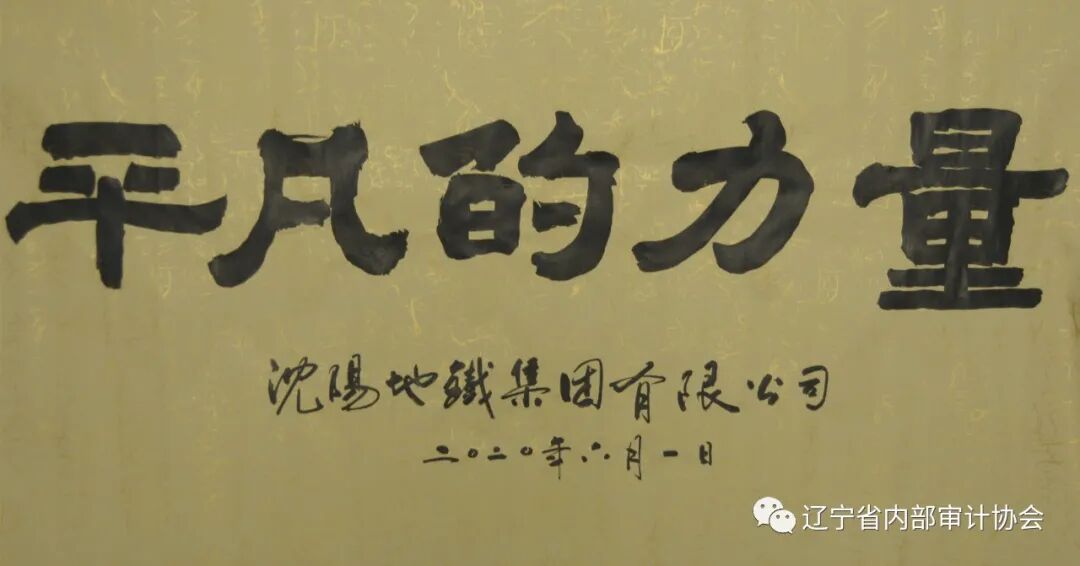 平凡的力量
沈陽地鐵集团有限公司
二〇二〇年六月一日
辽宁省内部审计协会